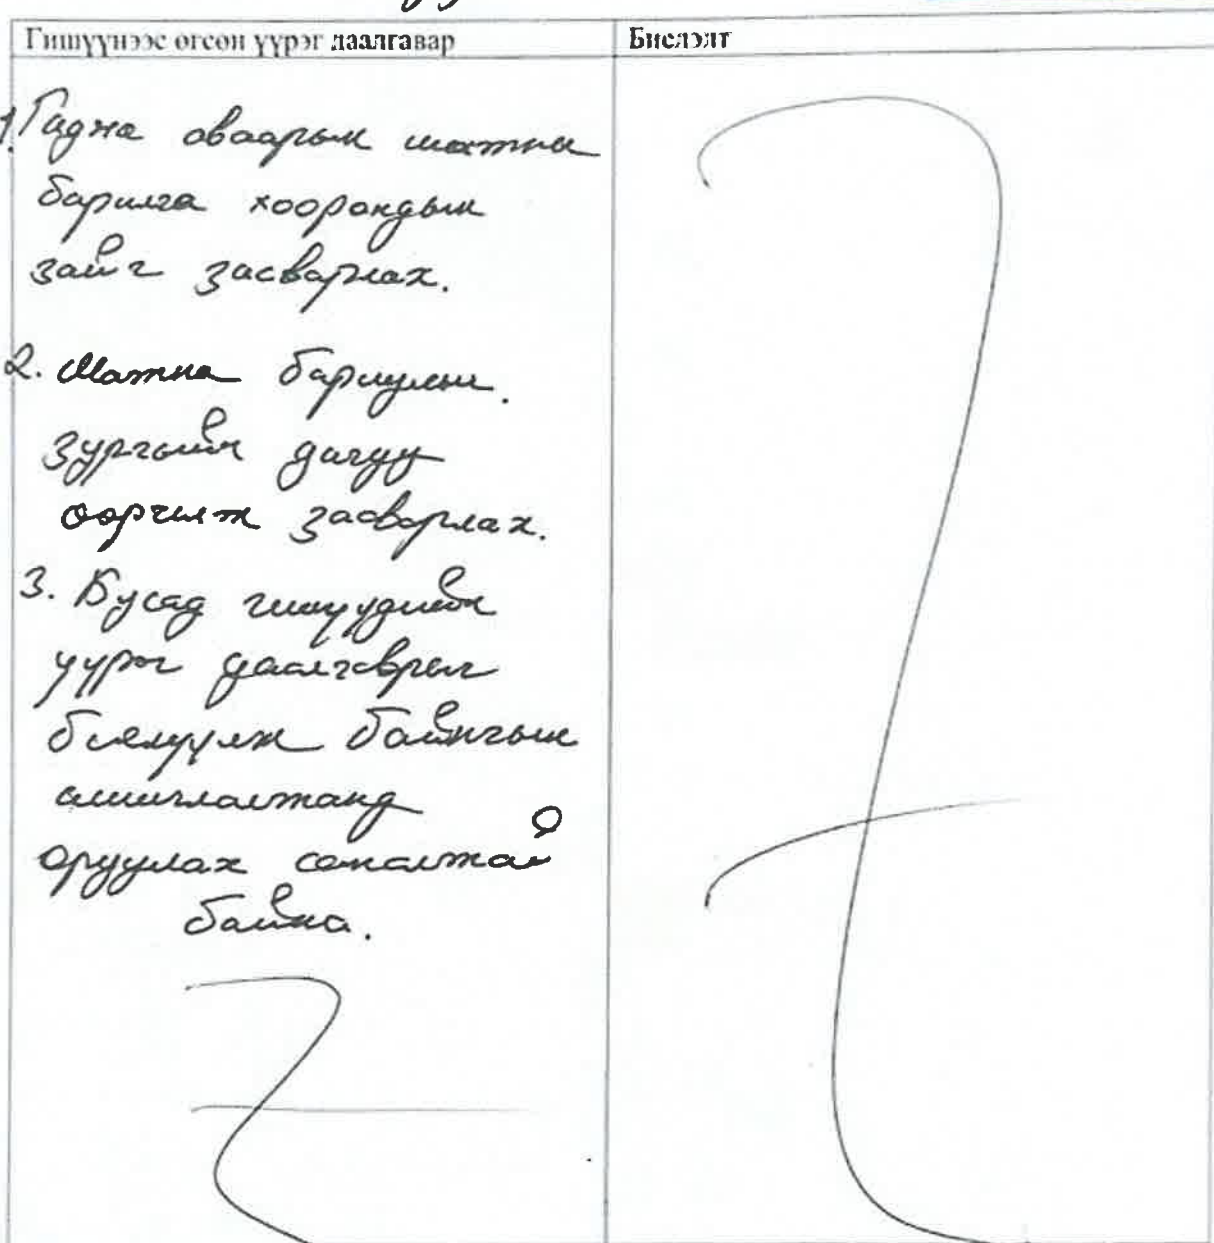 Гишүүнээс өгсөн үүрэг даалгавар
Биелэлт
1. Гадна аваарын шатны
барилга хоорондын
зайг засварлах.
2. Шатны бариулын
зургийн дагуу
өөрчилж засварлах.
3. Бусад гишүүдийн
үүрэг даалгаврыг
биелүүлж байнгын
ашиглалтанд
оруулах саналтай
байна.